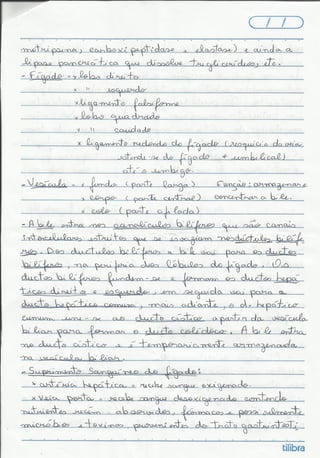 metripsina, carboxipeptidase e elastase) e ainda a
lipase pancreática que dissolve triglicerídeos, etc.
- Fígado - x lobo direito
x " esquerdo
x ligamento falsiforme
x lobo quadrado
x " caudado
x ligamento redondo do fígado (resquício da veia
estende-se do fígado + umbilical)
até o umbigo.
- Vesícula - x fundo (parte larga) Função: armazenar e
x corpo (parte central) concentrar a bile.
x colo (parte afilada)
- A bile entra nos canalículos bilíferos que são canais
intercelulares estreitos que se esvaziam nos dúctulos bilífe
ros. Dos ductulos bilíferos a bile vai para os ductos
bilíferos, na periferia dos lóbulos do fígado. Os
ductos bilíferos fundem-se e formam os ductos hepá
ticos direito e esquerdo, em seguida vai para o
ducto hepático comum, mais adiante, o d. hepático
comum une-se ao ducto cístico a partir da vesícula
biliar para formar o ducto colédoco. A bile entra
no ducto cístico e é temporariamente armazenada
na vesícula biliar.
- Suprimento Sanguíneo do fígado:
x artéria hepática - recebe sangue oxigenado
x veia porta - recebe sangue desoxigenado contendo
nutrientes recém-absorvidos, fármacos e possivelmente
micróbios e toxinas, provenientes do trato gastrintesti-
tilibra